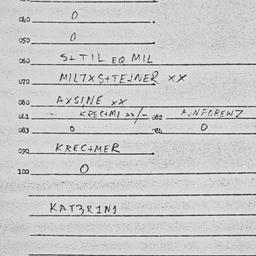 040 0
050 0
060 S+TIL EQ MIL
070 MIL7XS+TEJNER XX
080 AXSINE XX
081 KRECHMI 22/- 082 AJNFOREN7
083 0 084 0
090 KRECHMER
100 0
KAT3R1N1